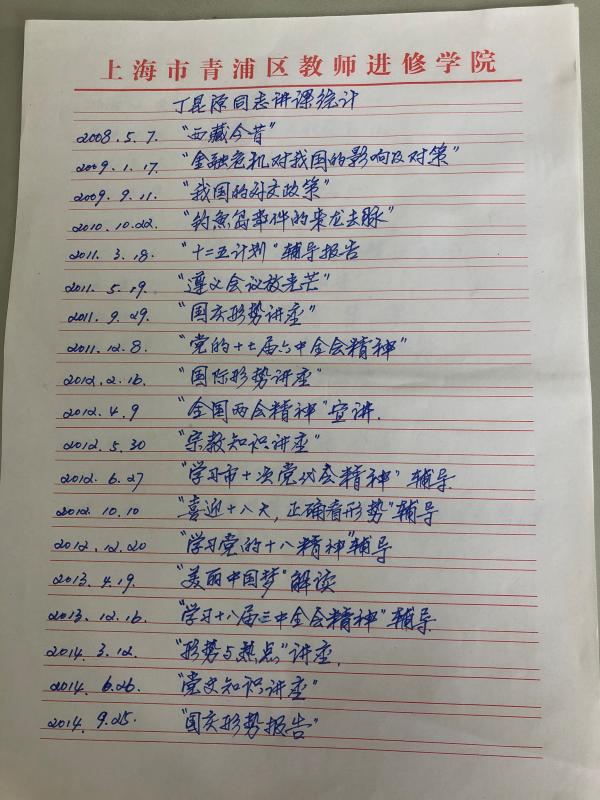 上海市青浦区教师进修学院
丁昆源同志讲课统计
2008.5.7. "西藏今昔"
2009.1.17. "金融危机对我国的影响及对策"
2009.9.11. "我国的对交政策"
2010.10.22. "钓鱼岛事件的来龙去脉"
2011.3.18. "十二五计划"辅导报告
2011.5.19. "遵义会议放光芒"
2011.9.29. "国庆形势讲座"
2011.12.8. "党的十七届六中全会精神"
2012.2.16. "国际形势讲座"
2012.4.9 "全国两会精神"宣讲.
2012.5.30 "宗教知识讲座"
2012.6.27 "学习市十次党代会精神"辅导
2012.10.10 "喜迎十八大,正确看形势"辅导
2012.12.20 "学习党的十八精神"辅导
2013.4.19. "美丽中国梦"解读
2013.12.16. "学习十八届三中全会精神"辅导
2014.3.12. "形势与热点"讲座.
2014.6.26. "党史知识讲座"
2014.9.25. "国庆形势报告"